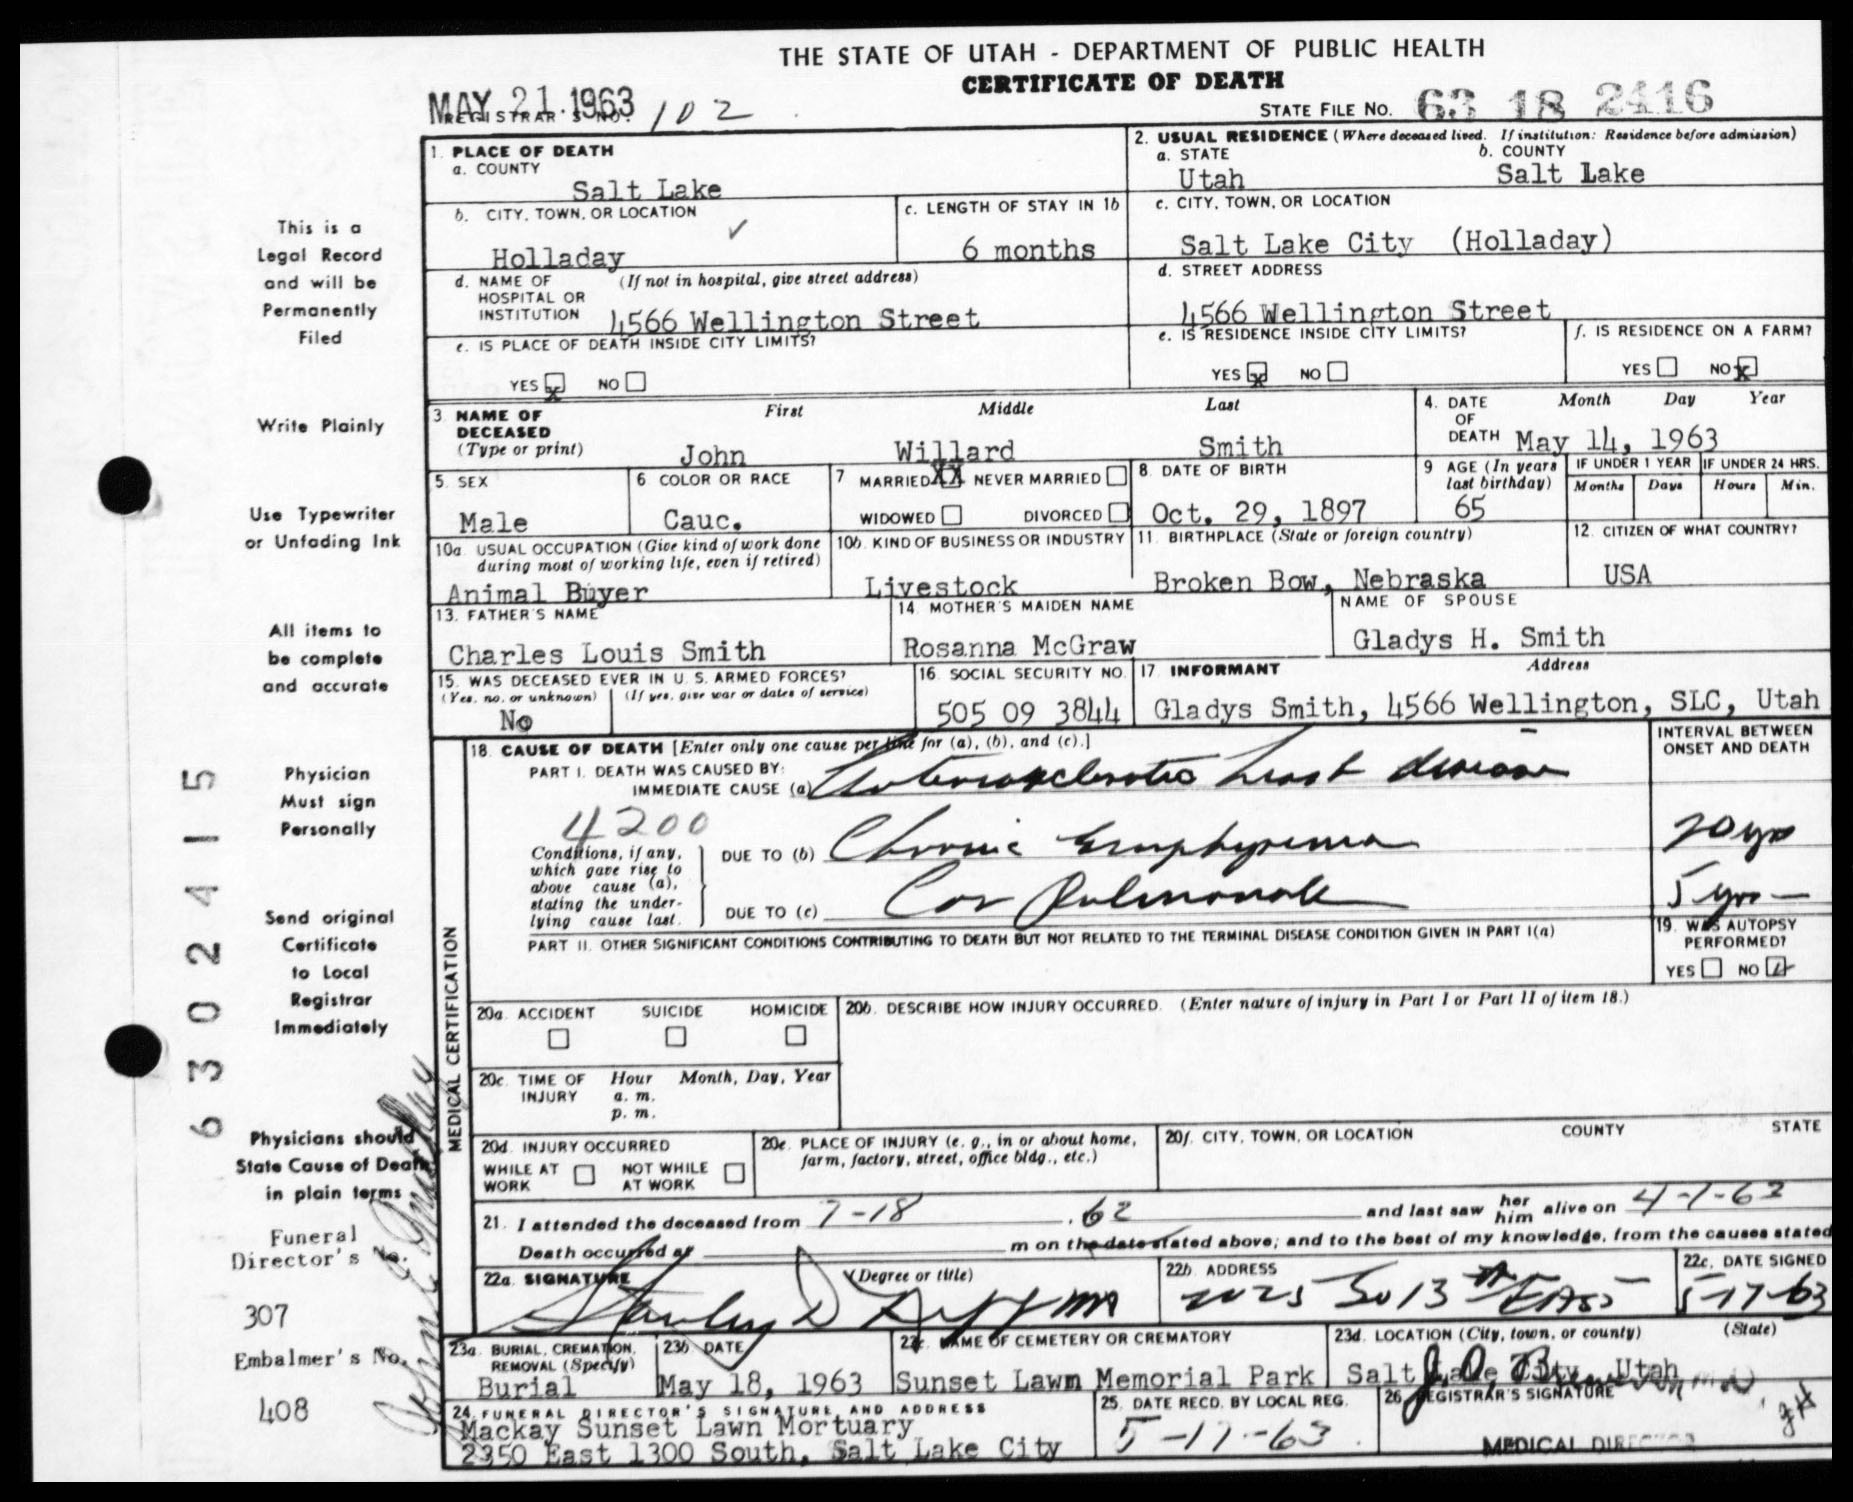 THE STATE OF UTAH - DEPARTMENT OF PUBLIC HEALTH
CERTIFICATE OF DEATH
MAY 21 1963
REGISTRAR'S NO. 102
STATE FILE NO. 63 18 2416
1. PLACE OF DEATH
a. COUNTY
Salt Lake
2. USUAL RESIDENCE (Where deceased lived. If institution: Residence before admission)
a. STATE
Utah
b. COUNTY
Salt Lake
b. CITY, TOWN, OR LOCATION
Holladay
c. LENGTH OF STAY IN 1b
6 months
c. CITY, TOWN, OR LOCATION
Salt Lake City (Holladay)
d. NAME OF HOSPITAL OR INSTITUTION
(If not in hospital, give street address)
4566 Wellington Street
d. STREET ADDRESS
4566 Wellington Street
e. IS PLACE OF DEATH INSIDE CITY LIMITS?
YES x NO
e. IS RESIDENCE INSIDE CITY LIMITS?
YES x NO
f. IS RESIDENCE ON A FARM?
YES NO x
3. NAME OF DECEASED
(Type or print)
First Middle Last
John Willard Smith
4. DATE OF DEATH
Month Day Year
May 14, 1963
5. SEX
Male
6. COLOR OR RACE
Cauc.
7 MARRIED XX NEVER MARRIED
WIDOWED DIVORCED
8. DATE OF BIRTH
Oct. 29, 1897
9 AGE (In years last birthday)
65
IF UNDER 1 YEAR
Months Days
IF UNDER 24 HRS.
Hours Min.
10a. USUAL OCCUPATION (Give kind of work done during most of working life, even if retired)
Animal Buyer
10b. KIND OF BUSINESS OR INDUSTRY
Livestock
11. BIRTHPLACE (State or foreign country)
Broken Bow, Nebraska
12. CITIZEN OF WHAT COUNTRY?
USA
13. FATHER'S NAME
Charles Louis Smith
14. MOTHER'S MAIDEN NAME
Rosanna McGraw
NAME OF SPOUSE
Gladys H. Smith
15. WAS DECEASED EVER IN U. S. ARMED FORCES?
(Yes, no, or unknown) (If yes, give war or dates of service)
No
16. SOCIAL SECURITY NO.
505 09 3844
17. INFORMANT Address
Gladys Smith, 4566 Wellington, SLC, Utah
MEDICAL CERTIFICATION
18. CAUSE OF DEATH [Enter only one cause per line for (a), (b), and (c).]
INTERVAL BETWEEN ONSET AND DEATH
PART I. DEATH WAS CAUSED BY:
IMMEDIATE CAUSE (a) Arteriosclerotic heart disease
4200
Conditions, if any, which gave rise to above cause (a), stating the underlying cause last.
DUE TO (b) Chronic Emphysema 20 yrs
DUE TO (c) Cor Pulmonale 5 yrs
PART II. OTHER SIGNIFICANT CONDITIONS CONTRIBUTING TO DEATH BUT NOT RELATED TO THE TERMINAL DISEASE CONDITION GIVEN IN PART I(a)
19. WAS AUTOPSY PERFORMED?
YES NO
20a. ACCIDENT SUICIDE HOMICIDE
20b. DESCRIBE HOW INJURY OCCURRED. (Enter nature of injury in Part I or Part II of item 18.)
20c. TIME OF INJURY
Hour Month, Day, Year
a. m.
p. m.
20d. INJURY OCCURRED
WHILE AT WORK NOT WHILE AT WORK
20e. PLACE OF INJURY (e. g., in or about home, farm, factory, street, office bldg., etc.)
20f. CITY, TOWN, OR LOCATION COUNTY STATE
21. I attended the deceased from 7-18 , 62 and last saw her him alive on 4-1-63
Death occurred at m on the date stated above; and to the best of my knowledge, from the causes stated
22a. SIGNATURE (Degree or title)
22b. ADDRESS
2025 So 13th East
22c. DATE SIGNED
5-17-63
23a. BURIAL, CREMATION, REMOVAL (Specify)
Burial
23b. DATE
May 18, 1963
23c. NAME OF CEMETERY OR CREMATORY
Sunset Lawn Memorial Park
23d. LOCATION (City, town, or county) (State)
Salt Lake City, Utah
24. FUNERAL DIRECTOR'S SIGNATURE AND ADDRESS
Mackay Sunset Lawn Mortuary
2350 East 1300 South, Salt Lake City
25. DATE RECD. BY LOCAL REG.
5-17-63
26. REGISTRAR'S SIGNATURE
MEDICAL DIRECTOR
This is a
Legal Record
and will be
Permanently
Filed
Write Plainly
Use Typewriter
or Unfading Ink
All items to
be complete
and accurate
Physician
Must sign
Personally
Send original
Certificate
to Local
Registrar
Immediately
Physicians should
State Cause of Death
in plain terms
Funeral
Director's
307
Embalmer's No.
408
6302415